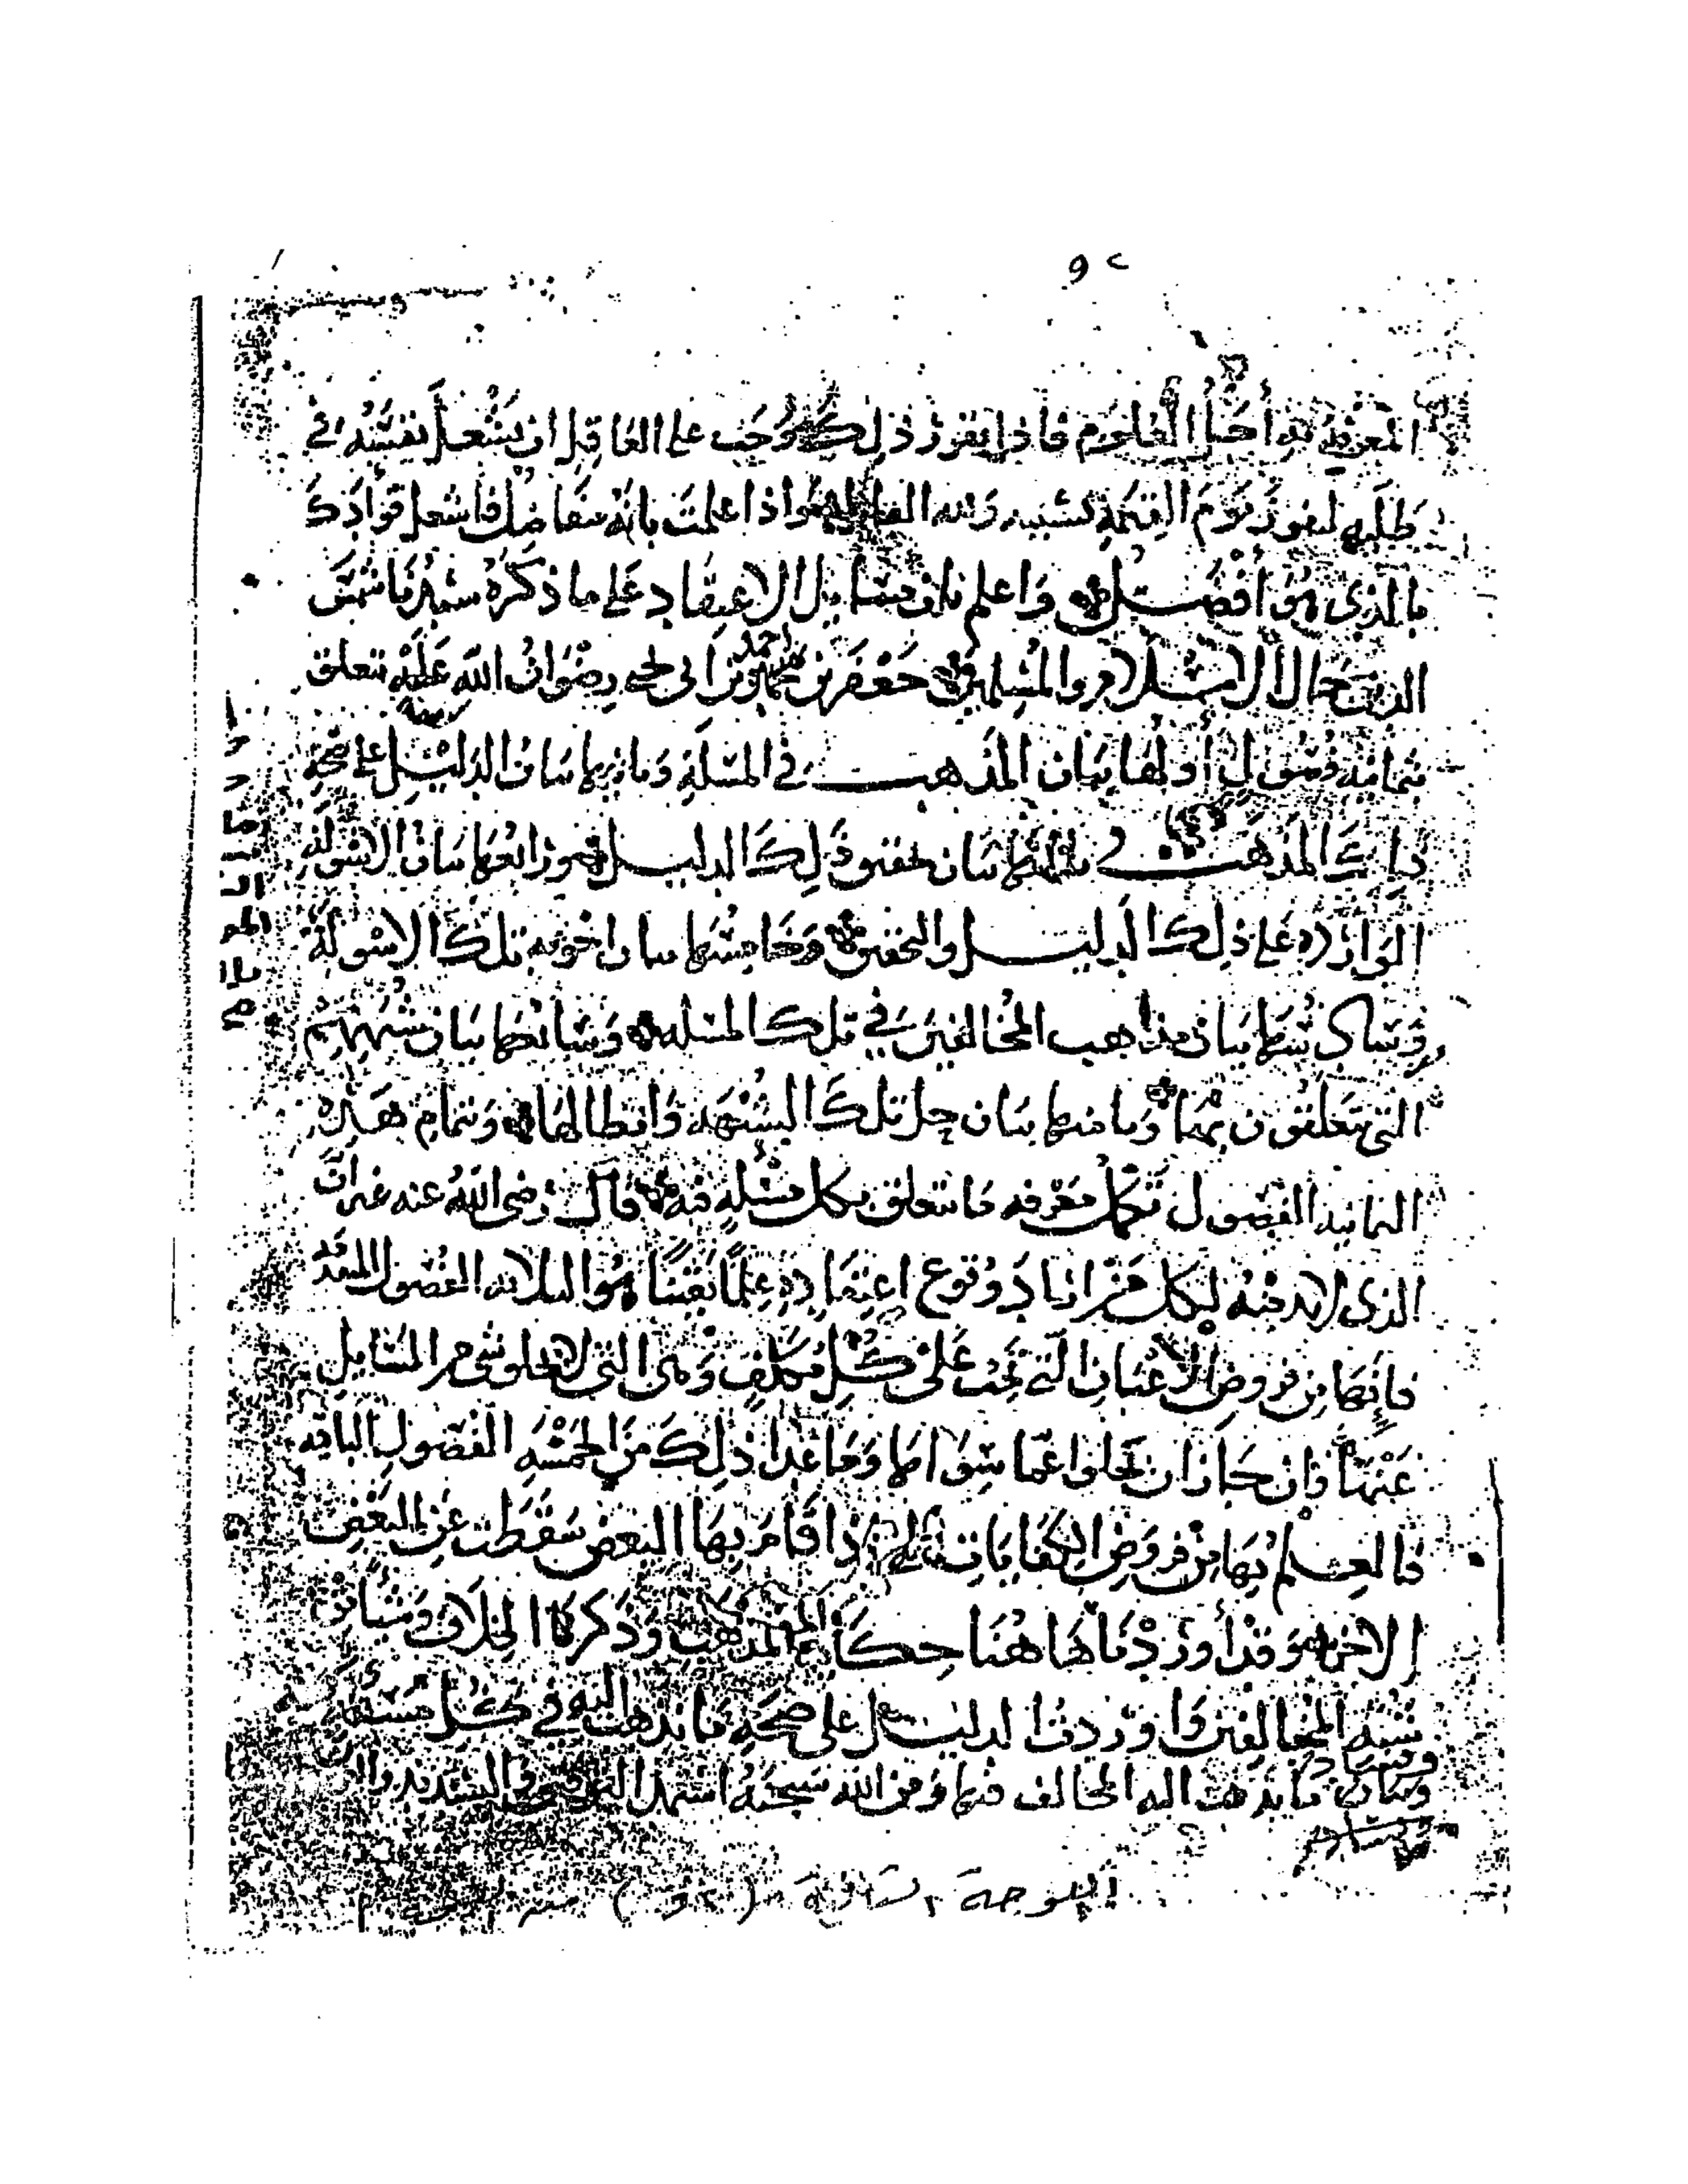 ٢ و
المعرفة به أجل العلوم فاذا تقرر ذلك وجب على العاقل ان يشغل نفسه في
طلبه ليفوز يوم القيمة واذا علمت بانه متفاضل فاشغل فؤادك
بالذي هو أفضل واعلم بان مسايل الاعتقاد على ما ذكره شيخنا شمس
الدين جمال الاسلام والمسلمين جعفر بن احمد بن ابي يحيى رضوان الله عليه تتعلق
بثمانية فصول أولها بيان المذهب في المسئلة وثانيها بيان الدليل على صحة
ذلك المذهب وثالثها بيان تحقيق ذلك الدليل ورابعها بيان الاسولة
الواردة على ذلك الدليل والتحقيق وخامسها بيان اجوبة تلك الاسولة
وسادسها بيان مذاهب المخالفين في تلك المسئلة وسابعها بيان شبههم
التي يتعلقون بها وثامنها بيان حل تلك الشبهة وابطالها وبتمام هذه
الثمانية الفصول تكمل معرفة ما يتعلق بكل مسئلة فيه قال رضي الله عنه غير ان
الذي لا بد منه لكل من اراد وقوع اعتقاده علما يقينا هو الثلاثة الفصول المتقدمة
فانها من فروض الاعيان التي تجب على كل مكلف وهي التي لا يخلو شي من المسايل
عنها وان جاز ان تخلوا عما سواها وما عدا ذلك من الخمسة الفصول الباقية
فالعلم بها من فروض الكفايات اذا قام بها البعض سقطت عن البعض
الاخر وقد أوردنا ها هنا حكاية المذهب وذكرنا الخلاف وبيان
شبه المخالفين واوردنا الدليل على صحة ما نذهب اليه في كل مسئلة
وفساد ما يذهب اليه المخالف فيها ومن الله سبحنه استمد التوفيق والتسديد
اللوحة الثانية (٢ و)